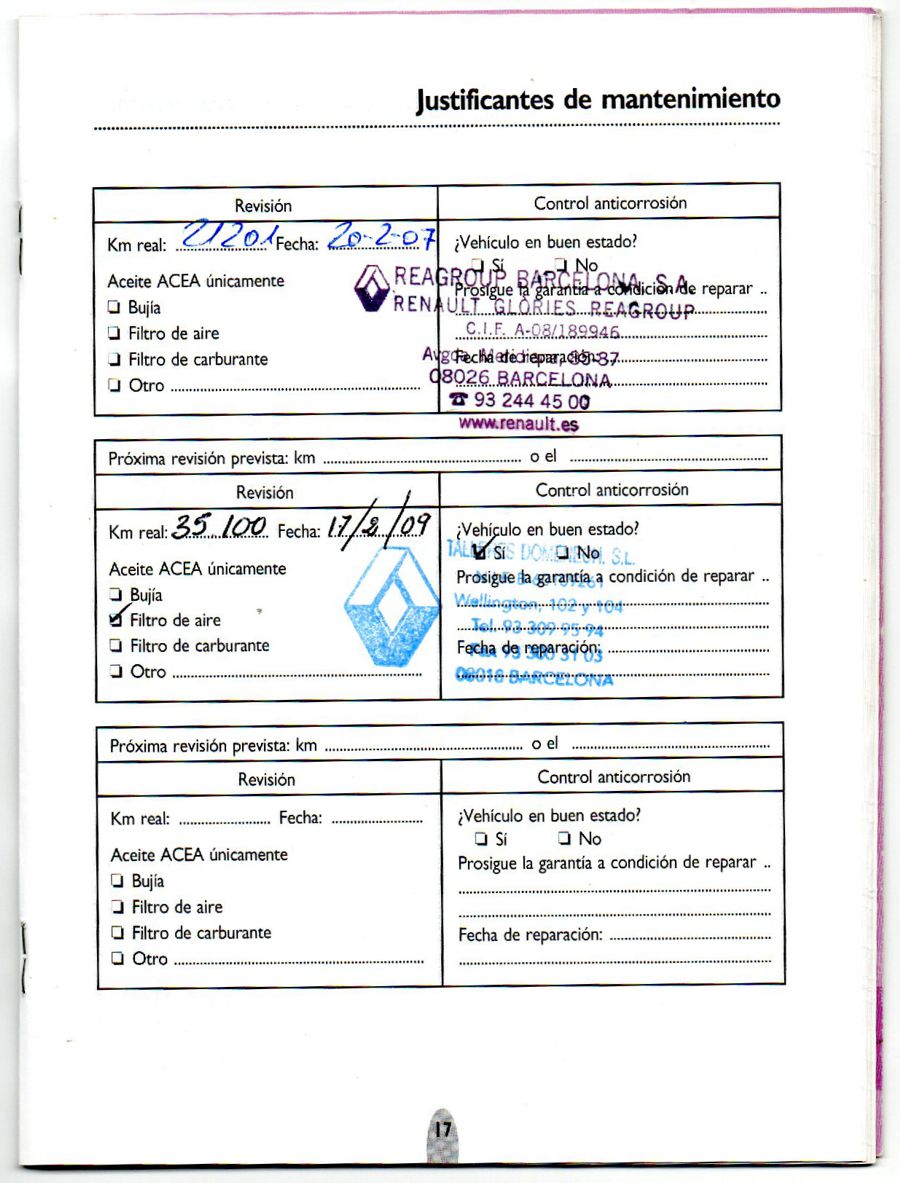 Justificantes de mantenimiento
Revisión
Control anticorrosión
Km real: 21201 Fecha: 20-2-07
¿Vehículo en buen estado?
Sí No
Aceite ACEA únicamente
REAGROUP BARCELONA, S.A.
Prosigue la garantía a condición de reparar ..
Bujía
RENAULT GLORIES REAGROUP
Filtro de aire
C.I.F. A-08/189946
Filtro de carburante
Avgda. Meridiana, 85-87
Fecha de reparación:
Otro
08026 BARCELONA
☎ 93 244 45 00
www.renault.es
Próxima revisión prevista: km o el
Revisión
Control anticorrosión
Km real: 35.100 Fecha: 17/2/09
¿Vehículo en buen estado?
TALLERES DOMENECH, S.L.
Sí No
Aceite ACEA únicamente
Prosigue la garantía a condición de reparar ..
Bujía
Wellington, 102 y 104
Filtro de aire
Tel. 93 309 95 94
Filtro de carburante
Fecha de reparación:
Fax 93 300 31 03
Otro
08018 BARCELONA
Próxima revisión prevista: km o el
Revisión
Control anticorrosión
Km real: Fecha:
¿Vehículo en buen estado?
Sí No
Aceite ACEA únicamente
Prosigue la garantía a condición de reparar ..
Bujía
Filtro de aire
Filtro de carburante
Fecha de reparación:
Otro
17